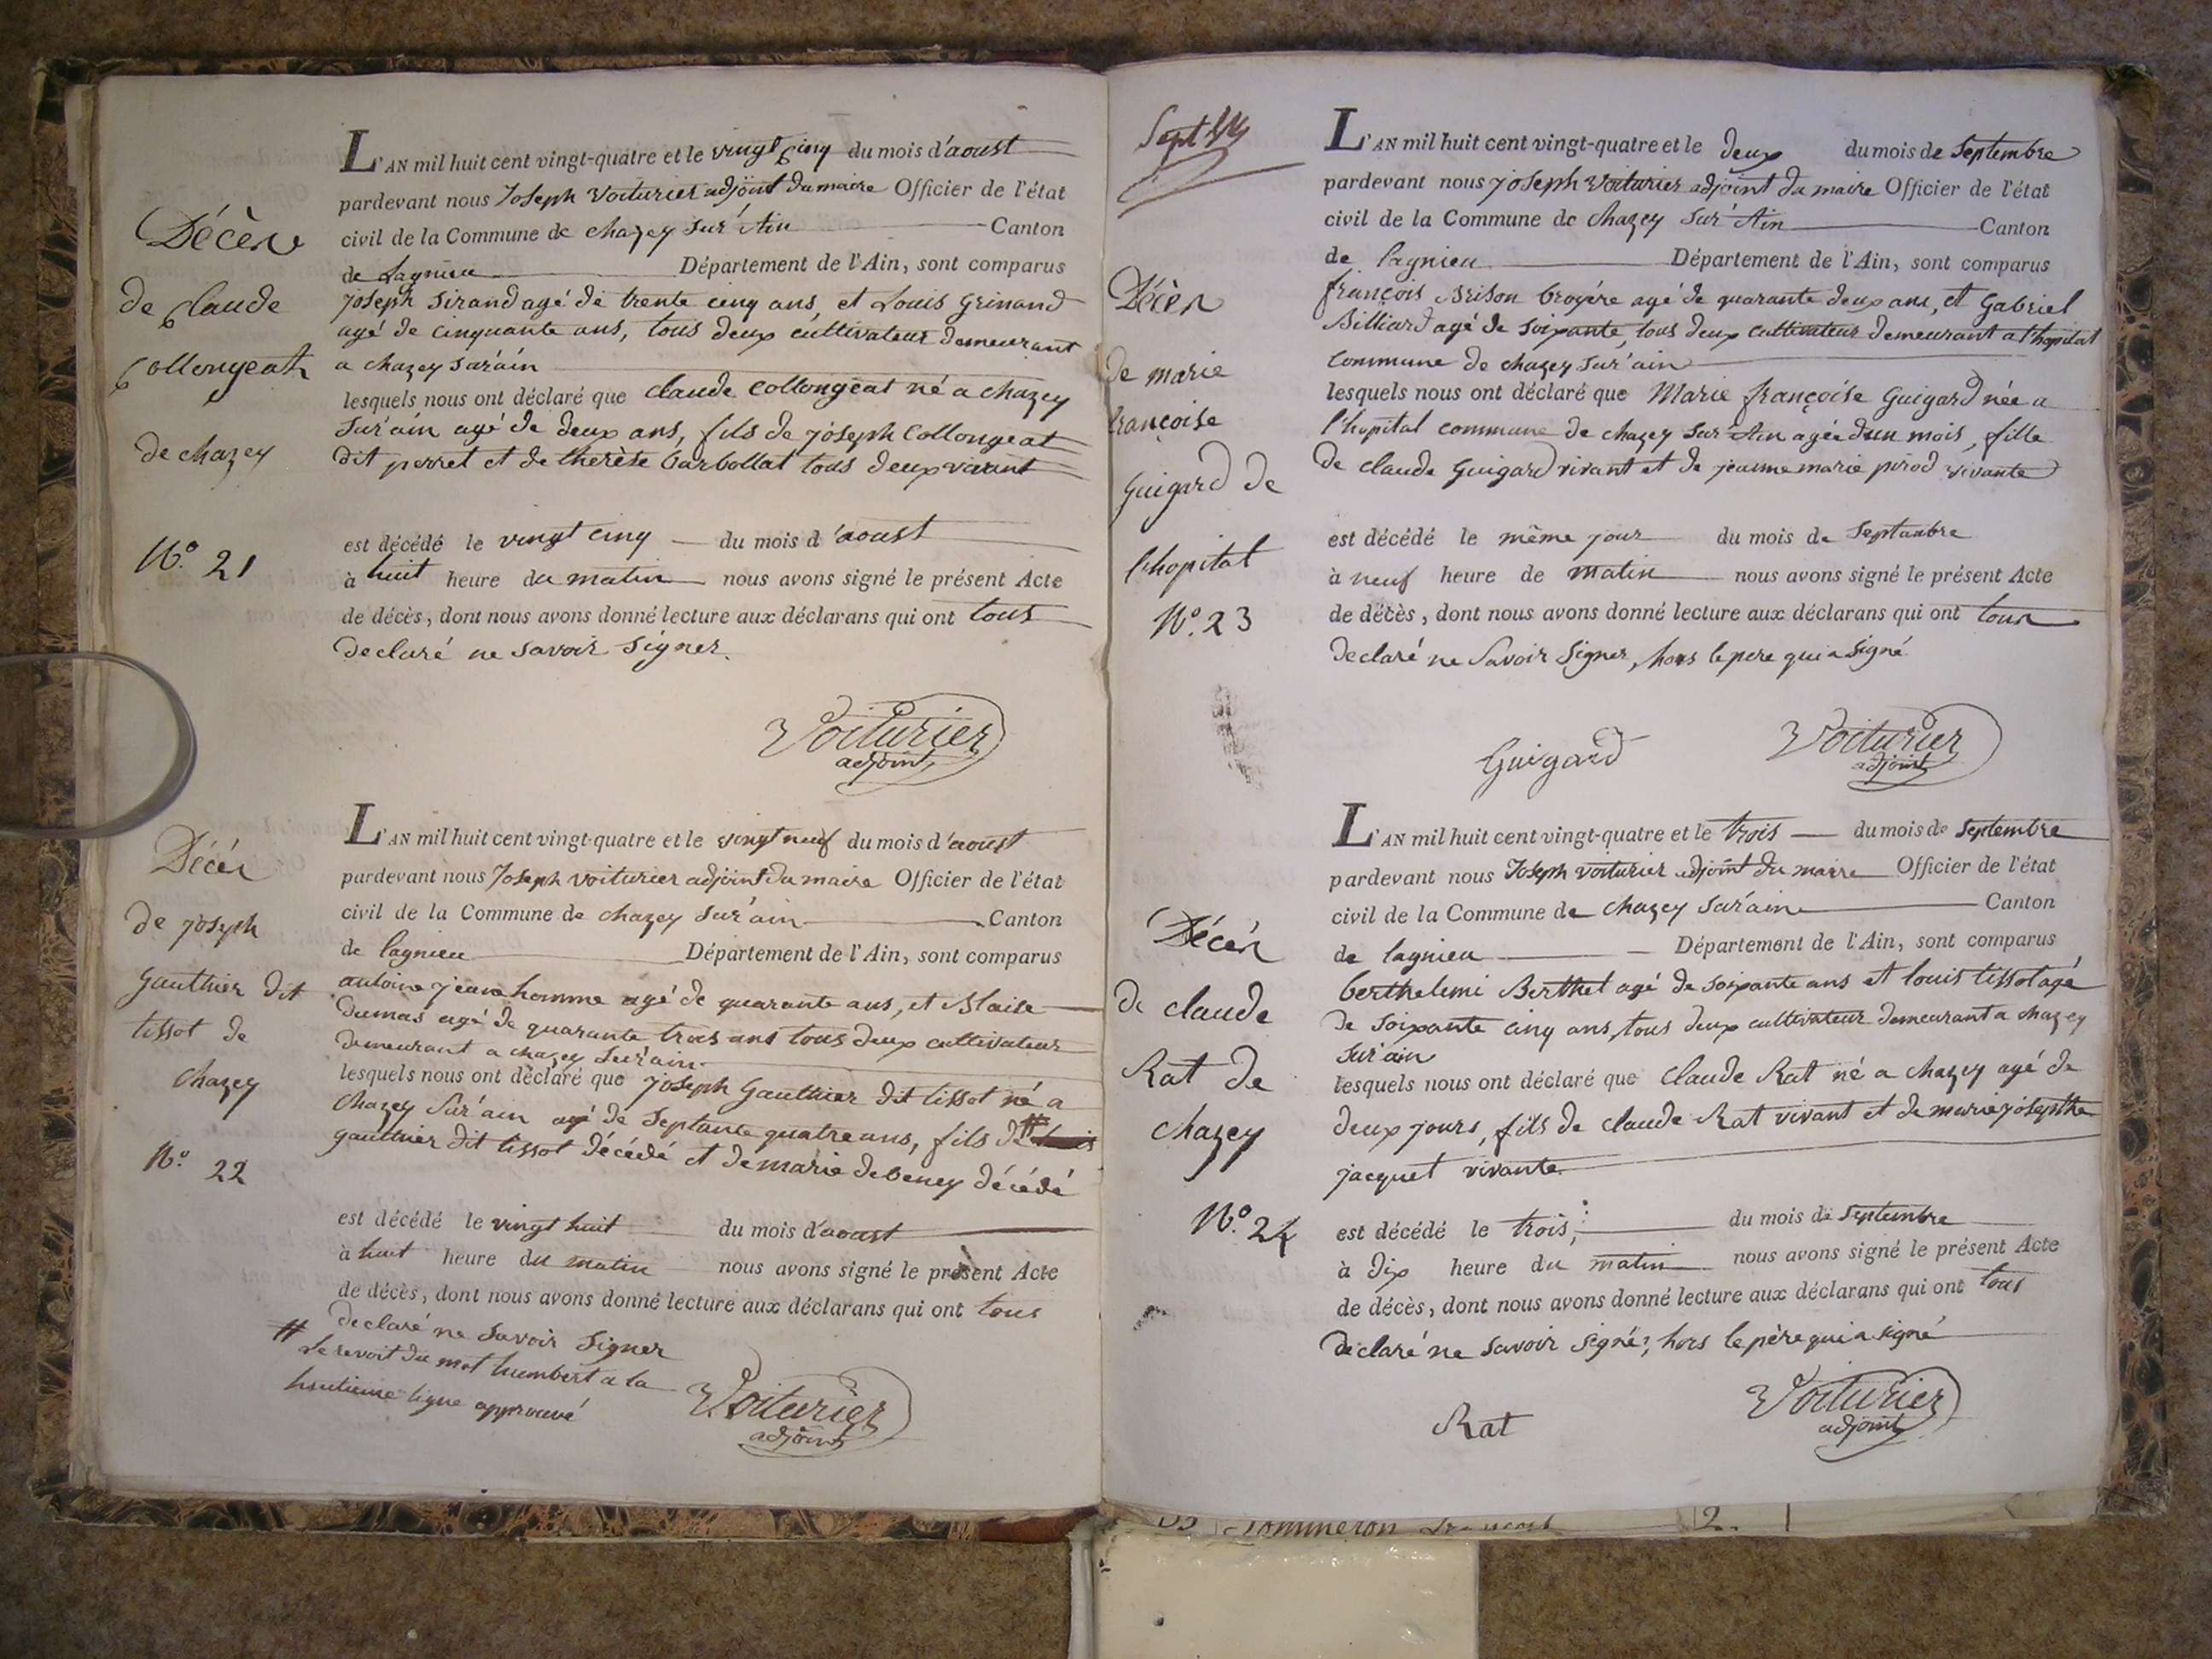 Décès
de Claude
Collongeat
de chazey
N.o 21
L'AN mil huit cent vingt-quatre et le vingt cinq du mois d'aoust
pardevant nous Joseph Voiturier adjoint du maire Officier de l'état
civil de la Commune de chazey sur'Ain Canton
de Lagnieu Département de l'Ain, sont comparus
Joseph Sirand agé de trente cinq ans, et Louis Grinand
agé de cinquante ans, tous deux cultivateur demeurant
a chazey sur'ain
lesquels nous ont déclaré que claude Collongeat né a chazey
sur'ain agé de deux ans, fils de joseph Collongeat
dit perret et de therèse barbollat tous deux vivant
est décédé le vingt cinq du mois d'aoust
à huit heure du matin nous avons signé le présent Acte
de décès, dont nous avons donné lecture aux déclarans qui ont tous
declaré ne savoir signer.
Voiturier
adjoint
Décès
de joseph
Gauthier dit
tissot de
chazey
N.o 22
L'AN mil huit cent vingt-quatre et le vingt neuf du mois d'aoust
pardevant nous Joseph Voiturier adjoint du maire Officier de l'état
civil de la Commune de chazey sur'ain Canton
de lagnieu Département de l'Ain, sont comparus
antoine jeane homme agé de quarante ans, et Blaise
Dumas agé de quarante trois ans tous deux cultivateur
demeurant a chazey sur ain.
lesquels nous ont déclaré que joseph Gauthier dit tissot né a
chazey sur'ain agé de septante quatre ans, fils de #
gauthier dit tissot décédé et de marie debeney décédé
est décédé le vingt huit du mois d'aoust
à huit heure du matin nous avons signé le présent Acte
de décès, dont nous avons donné lecture aux déclarans qui ont tous
declaré ne savoir signer
# Le revoit du mot humbert a la
huitieme ligne approuvé
Voiturier
adjoint
Sept
Décès
de marie
françoise
Guigard de
l'hopital
N.o 23
L'AN mil huit cent vingt-quatre et le deux du mois de Septembre
pardevant nous joseph Voiturier adjoint du maire Officier de l'état
civil de la Commune de chazey sur'Ain Canton
de lagnieu Département de l'Ain, sont comparus
françois Brison broyére agé de quarante deux ans, et Gabriel
Billiard agé de soixante, tous deux cultivateur demeurant a l'hopital
commune de chazey sur'ain
lesquels nous ont déclaré que Marie françoise Guigard née a
l'hopital commune de chazey sur'Ain agée d'un mois, fille
de claude Guigard vivant et de jeanne marie pirod vivante
est décédé le même jour du mois de Septembre
à neuf heure de matin nous avons signé le présent Acte
de décès, dont nous avons donné lecture aux déclarans qui ont tous
declaré ne savoir signer, hors le pere qui a signé
Guigard
Voiturier
adjoint
Décés
de claude
Rat de
chazey
N.o 24
L'AN mil huit cent vingt-quatre et le trois du mois de Septembre
pardevant nous Joseph voiturier adjoint du maire Officier de l'état
civil de la Commune de chazey sur'ain Canton
de lagnieu Département de l'Ain, sont comparus
berthelemi Berthet agé de soixante ans et louis tissot agé
de soixante cinq ans, tous deux cultivateur demeurant a chazey
sur'ain
lesquels nous ont déclaré que Claude Rat né a chazey agé de
deux jours, fils de claude Rat vivant et de marie josepthe
jacquet vivante
est décédé le trois, du mois de Septembre
à dix heure du matin nous avons signé le présent Acte
de décès, dont nous avons donné lecture aux déclarans qui ont tous
déclaré ne savoir signé, hors le père qui a signé
Rat
Voiturier
adjoint